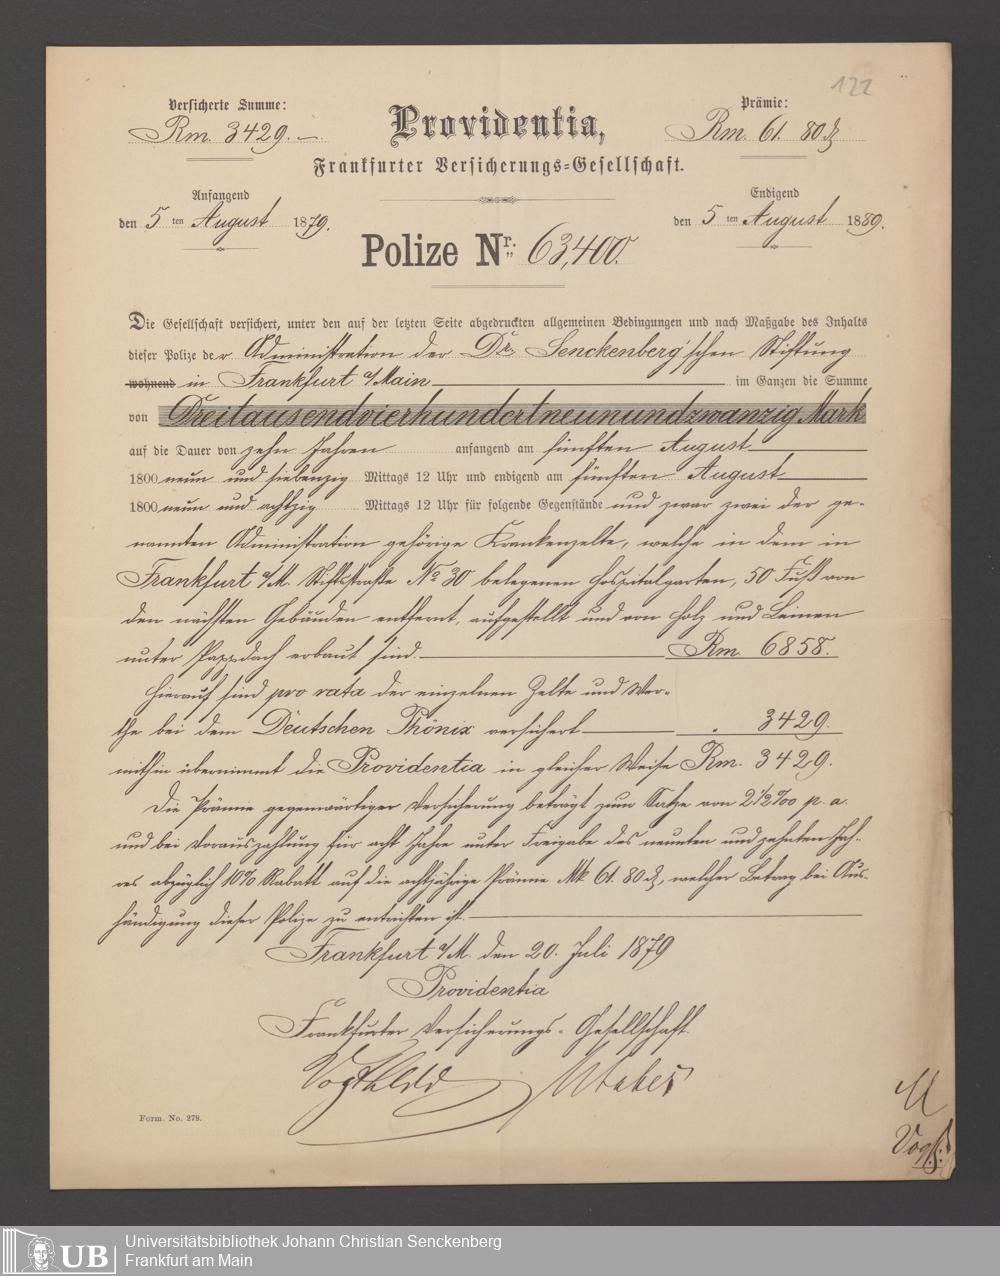 122
Versicherte Summe:
Rm. 3429.—
Providentia,
Frankfurter Versicherungs=Gesellschaft.
Prämie:
Rm. 61. 80 ₰
Anfangend
den 5 ten August 1879.
Endigend
den 5 ten August 1889.
Polize Nr. 63,400.
Die Gesellschaft versichert, unter den auf der letzten Seite abgedruckten allgemeinen Bedingungen und nach Maßgabe des Inhalts
dieser Polize der Administration der Dr. Senckenberg'schen Stiftung
wohnend in Frankfurt a/Main im Ganzen die Summe
von Dreitausendvierhundertneunundzwanzig Mark
auf die Dauer von zehn Jahren anfangend am fünften August
1800 neun und siebenzig Mittags 12 Uhr und endigend am fünften August
1800 neun und achtzig Mittags 12 Uhr für folgende Gegenstände und zwar zwei der ge-
nannten Administration gehörige Krankenzelte, welche in dem in
Frankfurt a/M. Stiftstraße No 30 belegenen Hospitalgarten, 50 Fuß von
den nächsten Gebäuden entfernt, aufgestellt und von Holz und Leinen
unter Pappdach erbaut sind. Rm. 6858.
Hierauf sind pro rata der einzelnen Zelte und Wer-
the bei dem Deutschen Phönix versichert " 3429.
mithin übernimmt die Providentia in gleicher Weise Rm. 3429.
Die Prämie gegenwärtiger Versicherung beträgt zum Satze von 2 1/2 ‰ p. a.
und bei Vorauszahlung für acht Jahre unter Freigabe des neunten und zehnten Jah-
res abzüglich 10% Rabatt auf die achtjährige Prämie Mk 61. 80 ₰, welcher Betrag bei Aus-
händigung dieser Polize zu entrichten ist.
Frankfurt a/M. den 20. Juli 1879
Providentia
Frankfurter Versicherungs-Gesellschaft.
Form. No. 279.
UB
Universitätsbibliothek Johann Christian Senckenberg
Frankfurt am Main